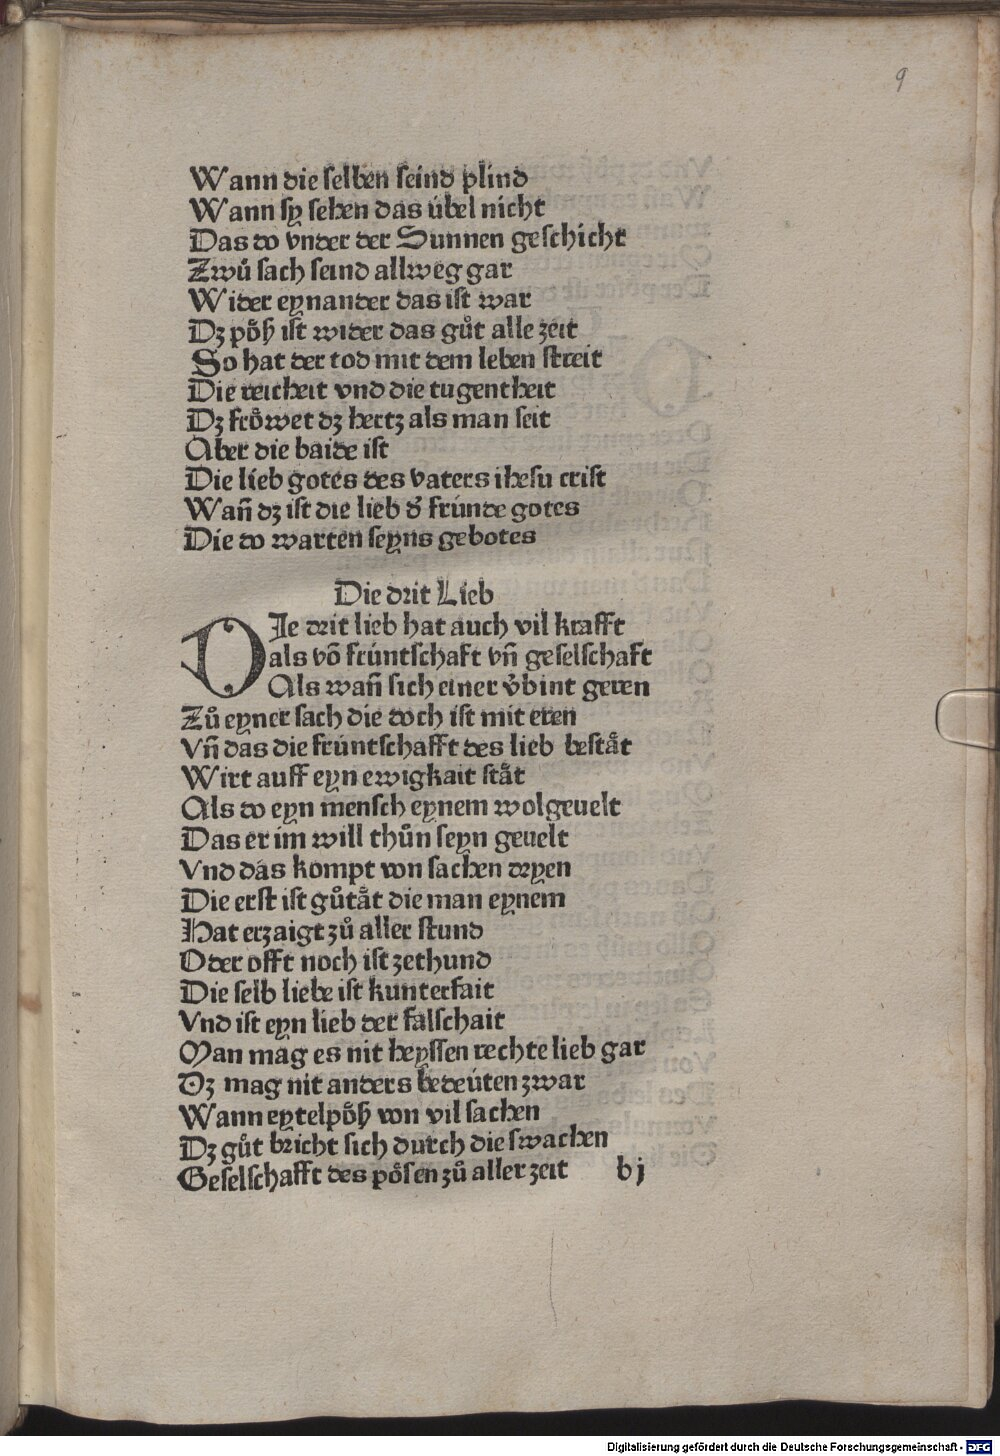 9
Wann die selben seind plind
Wann sy sehen das übel nicht
Das do vnder der Sunnen geschicht
Zwů sach seind allweg gar
Wider eynander das ist war
Dz pöß ist wider das gůt alle zeit
So hat der tod mit dem leben streit
Die reicheit vnd die tugentheit
Dz fröwet dz hertz als man seit
Aber die baide ist
Die lieb gotes des vaters ihesu crist
Wañ dz ist die lieb d' fründe gotes
Die do warten seyns gebotes
Die drit Lieb
DIe drit lieb hat auch vil krafft
als võ früntschaft vñ geselschaft
Als wañ sich einer v'bint geren
Zů eyner sach die doch ist mit eren
Vñ das die früntschafft des lieb bestät
Wirt auff eyn ewigkait stät
Als do eyn mensch eynem wolgeuelt
Das er im will thůn seyn geuelt
Vnd das kompt von sachen dryen
Die erst ist gůtät die man eynem
Hat erzaigt zů aller stund
Oder offt noch ist zethund
Die selb liebe ist kunterfait
Vnd ist eyn lieb der falschait
Man mag es nit heyssen rechte lieb gar
Dz mag nit anders bedeüten zwar
Wann eytelpöß von vil sachen
Dz gůt bricht sich durch die swachen
Geselschafft des pösen zů aller zeit bj
Digitalisierung gefördert durch die Deutsche Forschungsgemeinschaft - DFG